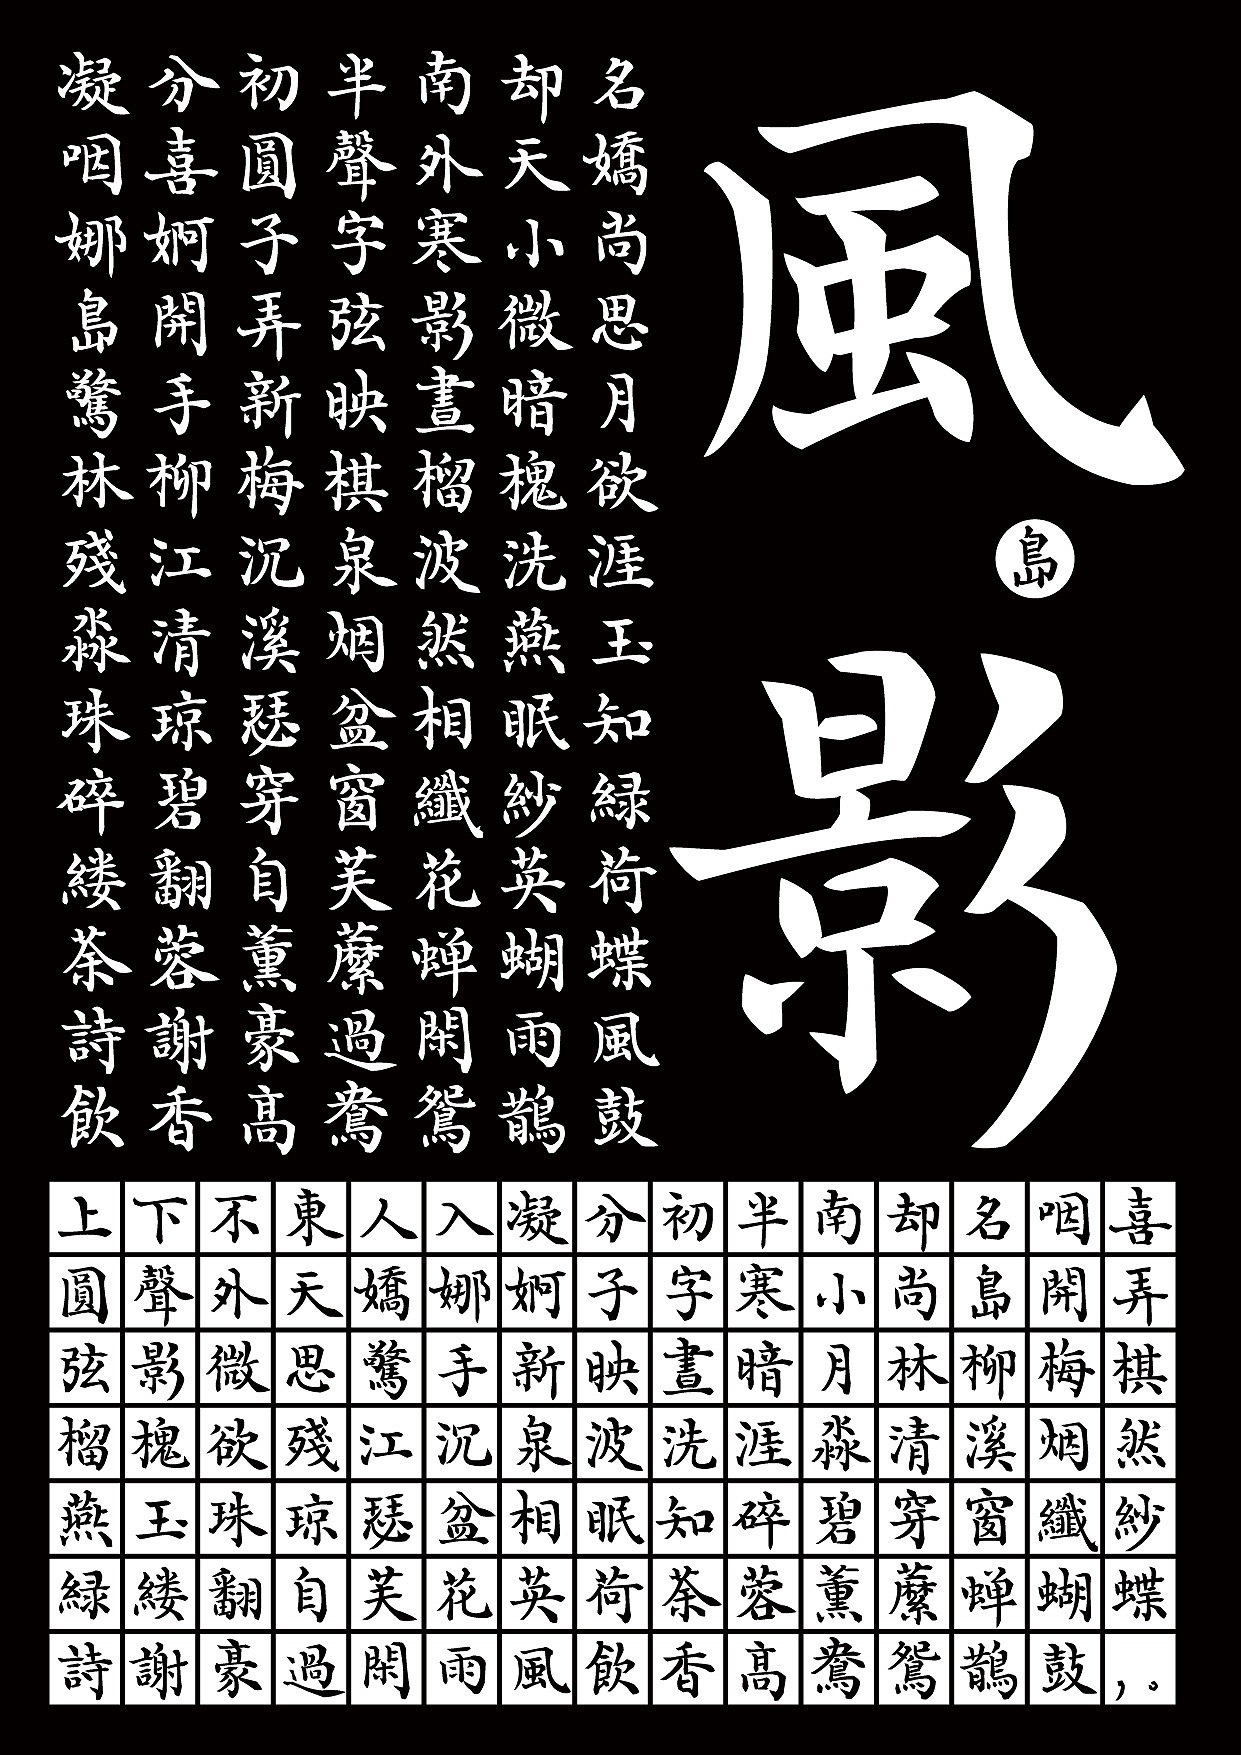 風
島
影
凝分初半南却名
咽喜圓聲外天嬌
娜婀子字寒小尚
島開弄弦影微思
驚手新映晝暗月
林柳梅棋榴槐欲
殘江沉泉波洗涯
淼清溪烟然燕玉
珠琼瑟盆相眠知
碎碧穿窗纖紗緑
縷翻自芙花英荷
荼蓉薰蘼蝉蝴蝶
詩謝豪過閑雨風
飲香高鴦鴛鵲鼓
上下不東人入凝分初半南却名咽喜
圓聲外天嬌娜婀子字寒小尚島開弄
弦影微思驚手新映晝暗月林柳梅棋
榴槐欲殘江沉泉波洗涯淼清溪烟然
燕玉珠琼瑟盆相眠知碎碧穿窗纖紗
緑縷翻自芙花英荷荼蓉薰蘼蝉蝴蝶
詩謝豪過閑雨風飲香高鴦鴛鵲鼓，。